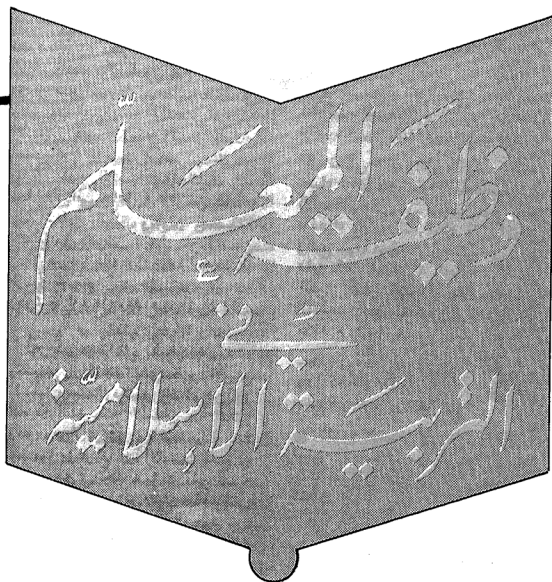 وظيفة المعلّم
في
التربية الإسلاميّة